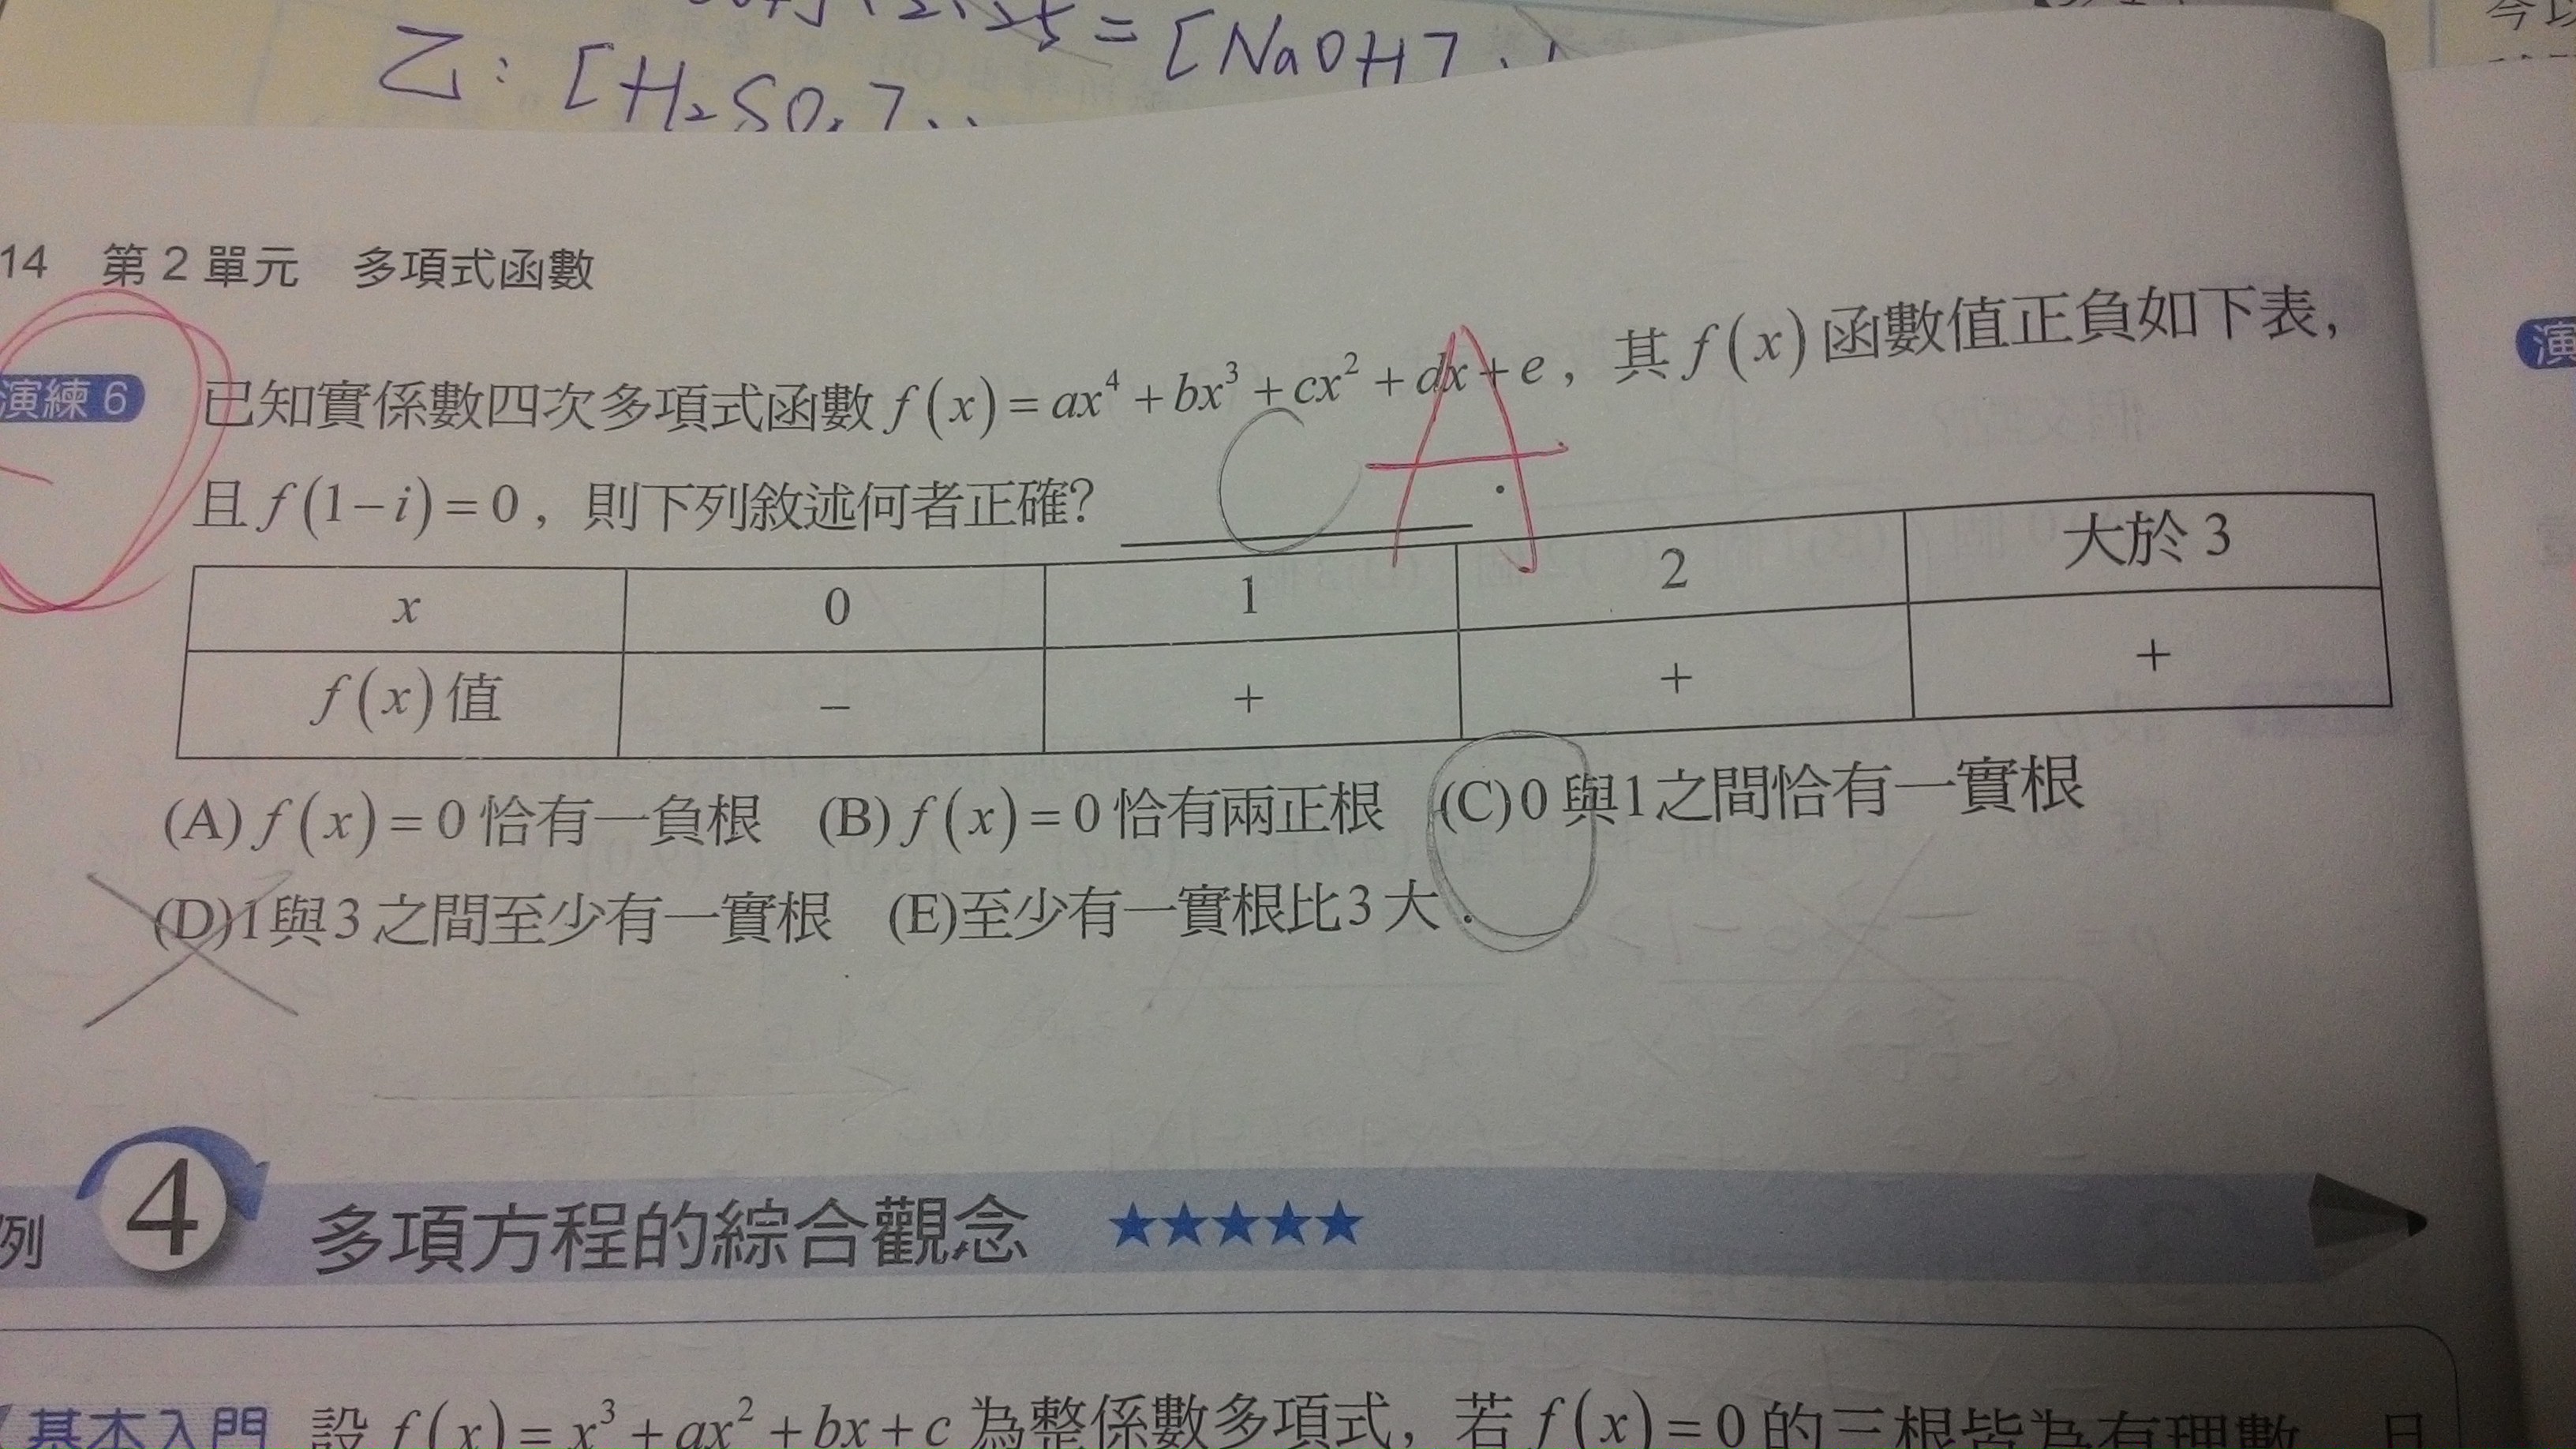 乙：[H₂SO₄] = [NaOH]
14 第 2 單元 多項式函數
演練 6 已知實係數四次多項式函數 f(x) = ax⁴ + bx³ + cx² + dx + e，其 f(x) 函數值正負如下表，
且 f(1−i) = 0，則下列敘述何者正確？ C A
x 0 1 2 大於 3
f(x) 值 − + + +
(A) f(x) = 0 恰有一負根 (B) f(x) = 0 恰有兩正根 (C) 0 與 1 之間恰有一實根
(D) 1 與 3 之間至少有一實根 (E) 至少有一實根比 3 大．
例 4 多項方程的綜合觀念 ★★★★★
基本入門 設 f(x) = x³ + ax² + bx + c 為整係數多項式，若 f(x) = 0 的三根皆為有理數 且